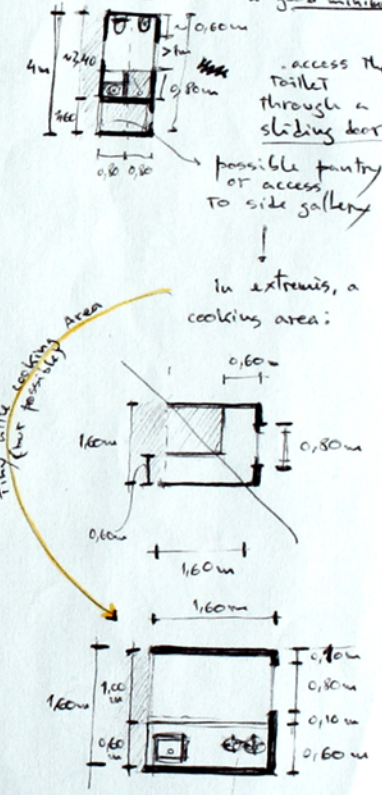 a good minim
~ 0,60m
>1m
4m
~2,40
0,80m
1,60
0,80 0,80
. access the
toilet
through a
sliding door
possible pantry
or access
to side gallery
In extremis, a
cooking area:
Tiny wide cooking Area
(but possible)
0,60m
1,60m
0,80m
0,60m
1,60m
1,60m
1,60m
1,00
m
0,60
m
0,10m
0,80m
0,10m
0,60m